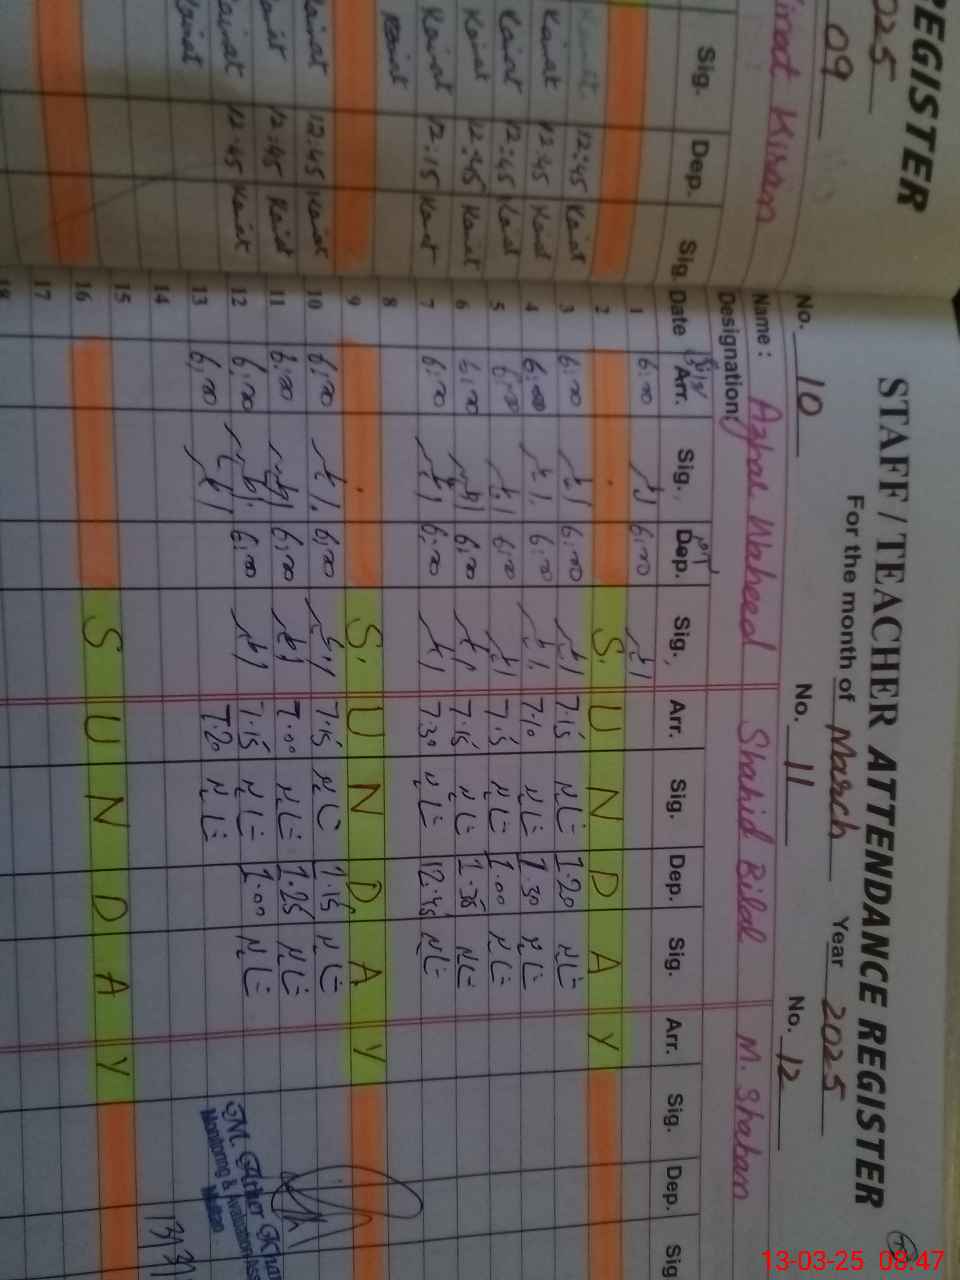 REGISTER
2025
09
Kiran
Sig. Dep. Sig.
Kainat 12:45 Kainat
Kainat 12:45 Kainat
Kainat 12:45 Kainat
Kainat 12:45 Kainat
Kainat 12:15 Kainat
Kainat
Kainat 12:45 Kainat
Kainat 12:45 Kainat
Kainat 12:45 Kainat
Kainat
STAFF / TEACHER ATTENDANCE REGISTER
For the month of March Year 2025
No. 10 No. 11 No. 12
Name : Waheed Shahid Bilal M. Shaham
Designation:
Date Arr. Sig. Dep. Sig. Arr. Sig. Dep. Sig. Arr. Sig. Dep. Sig
1 6:00 6:00
2 S U N D A Y
3 6:00 6:00 7.15 1.20
4 6:00 6:00 7.10 1.30
5 6:00 6:00 7.15 1.00
6 6:00 6:00 7.15
7 6:00 6:00 7.30 12.45
8
9 S U N D A Y
10 6:00 6:00 7.15 1.15
11 6:00 6:00 7.00 1.25
12 6:00 6:00 7.15 1.00
13 6:00 7.20
14
15
16 S U N D A Y
17
18
Khan
Monitoring & Evaluation
Multan
13-03-25 08:47